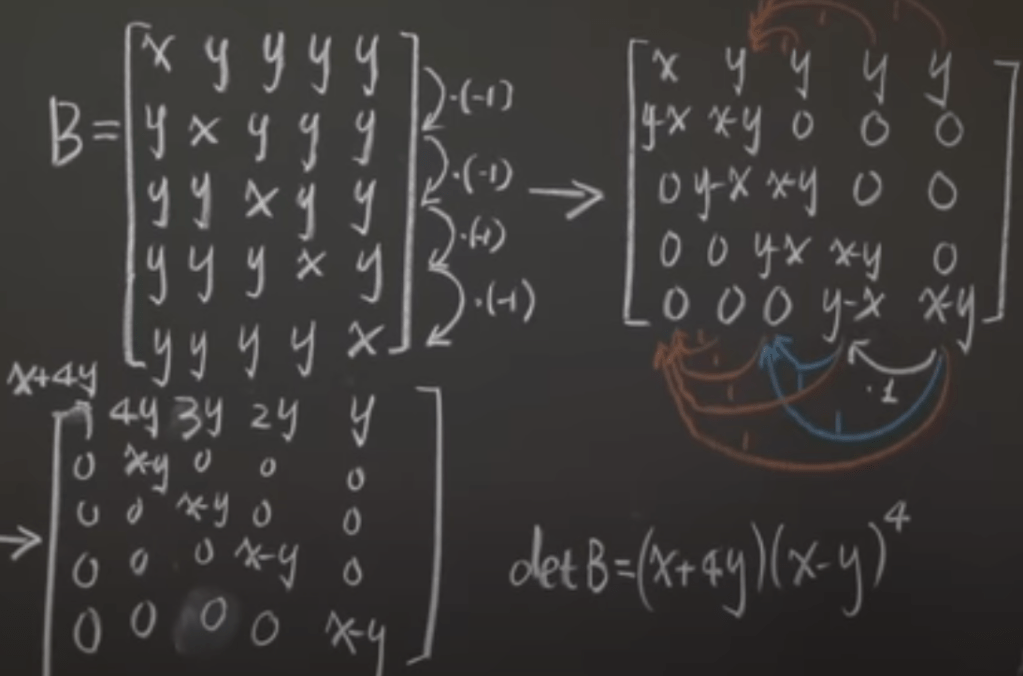 B = [ x y y y y
y x y y y
y y x y y
y y y x y
y y y y x ]
·(-1)
·(-1)
·(-1)
·(-1)
→
[ x y y y y
y-x x-y 0 0 0
0 y-x x-y 0 0
0 0 y-x x-y 0
0 0 0 y-x x-y ]
1 1 1
1 1 1 1
1 1
·1
→
x+4y
[ 4y 3y 2y y
0 x-y 0 0 0
0 0 x-y 0 0
0 0 0 x-y 0
0 0 0 0 x-y ]
det B = (x+4y)(x-y)^4